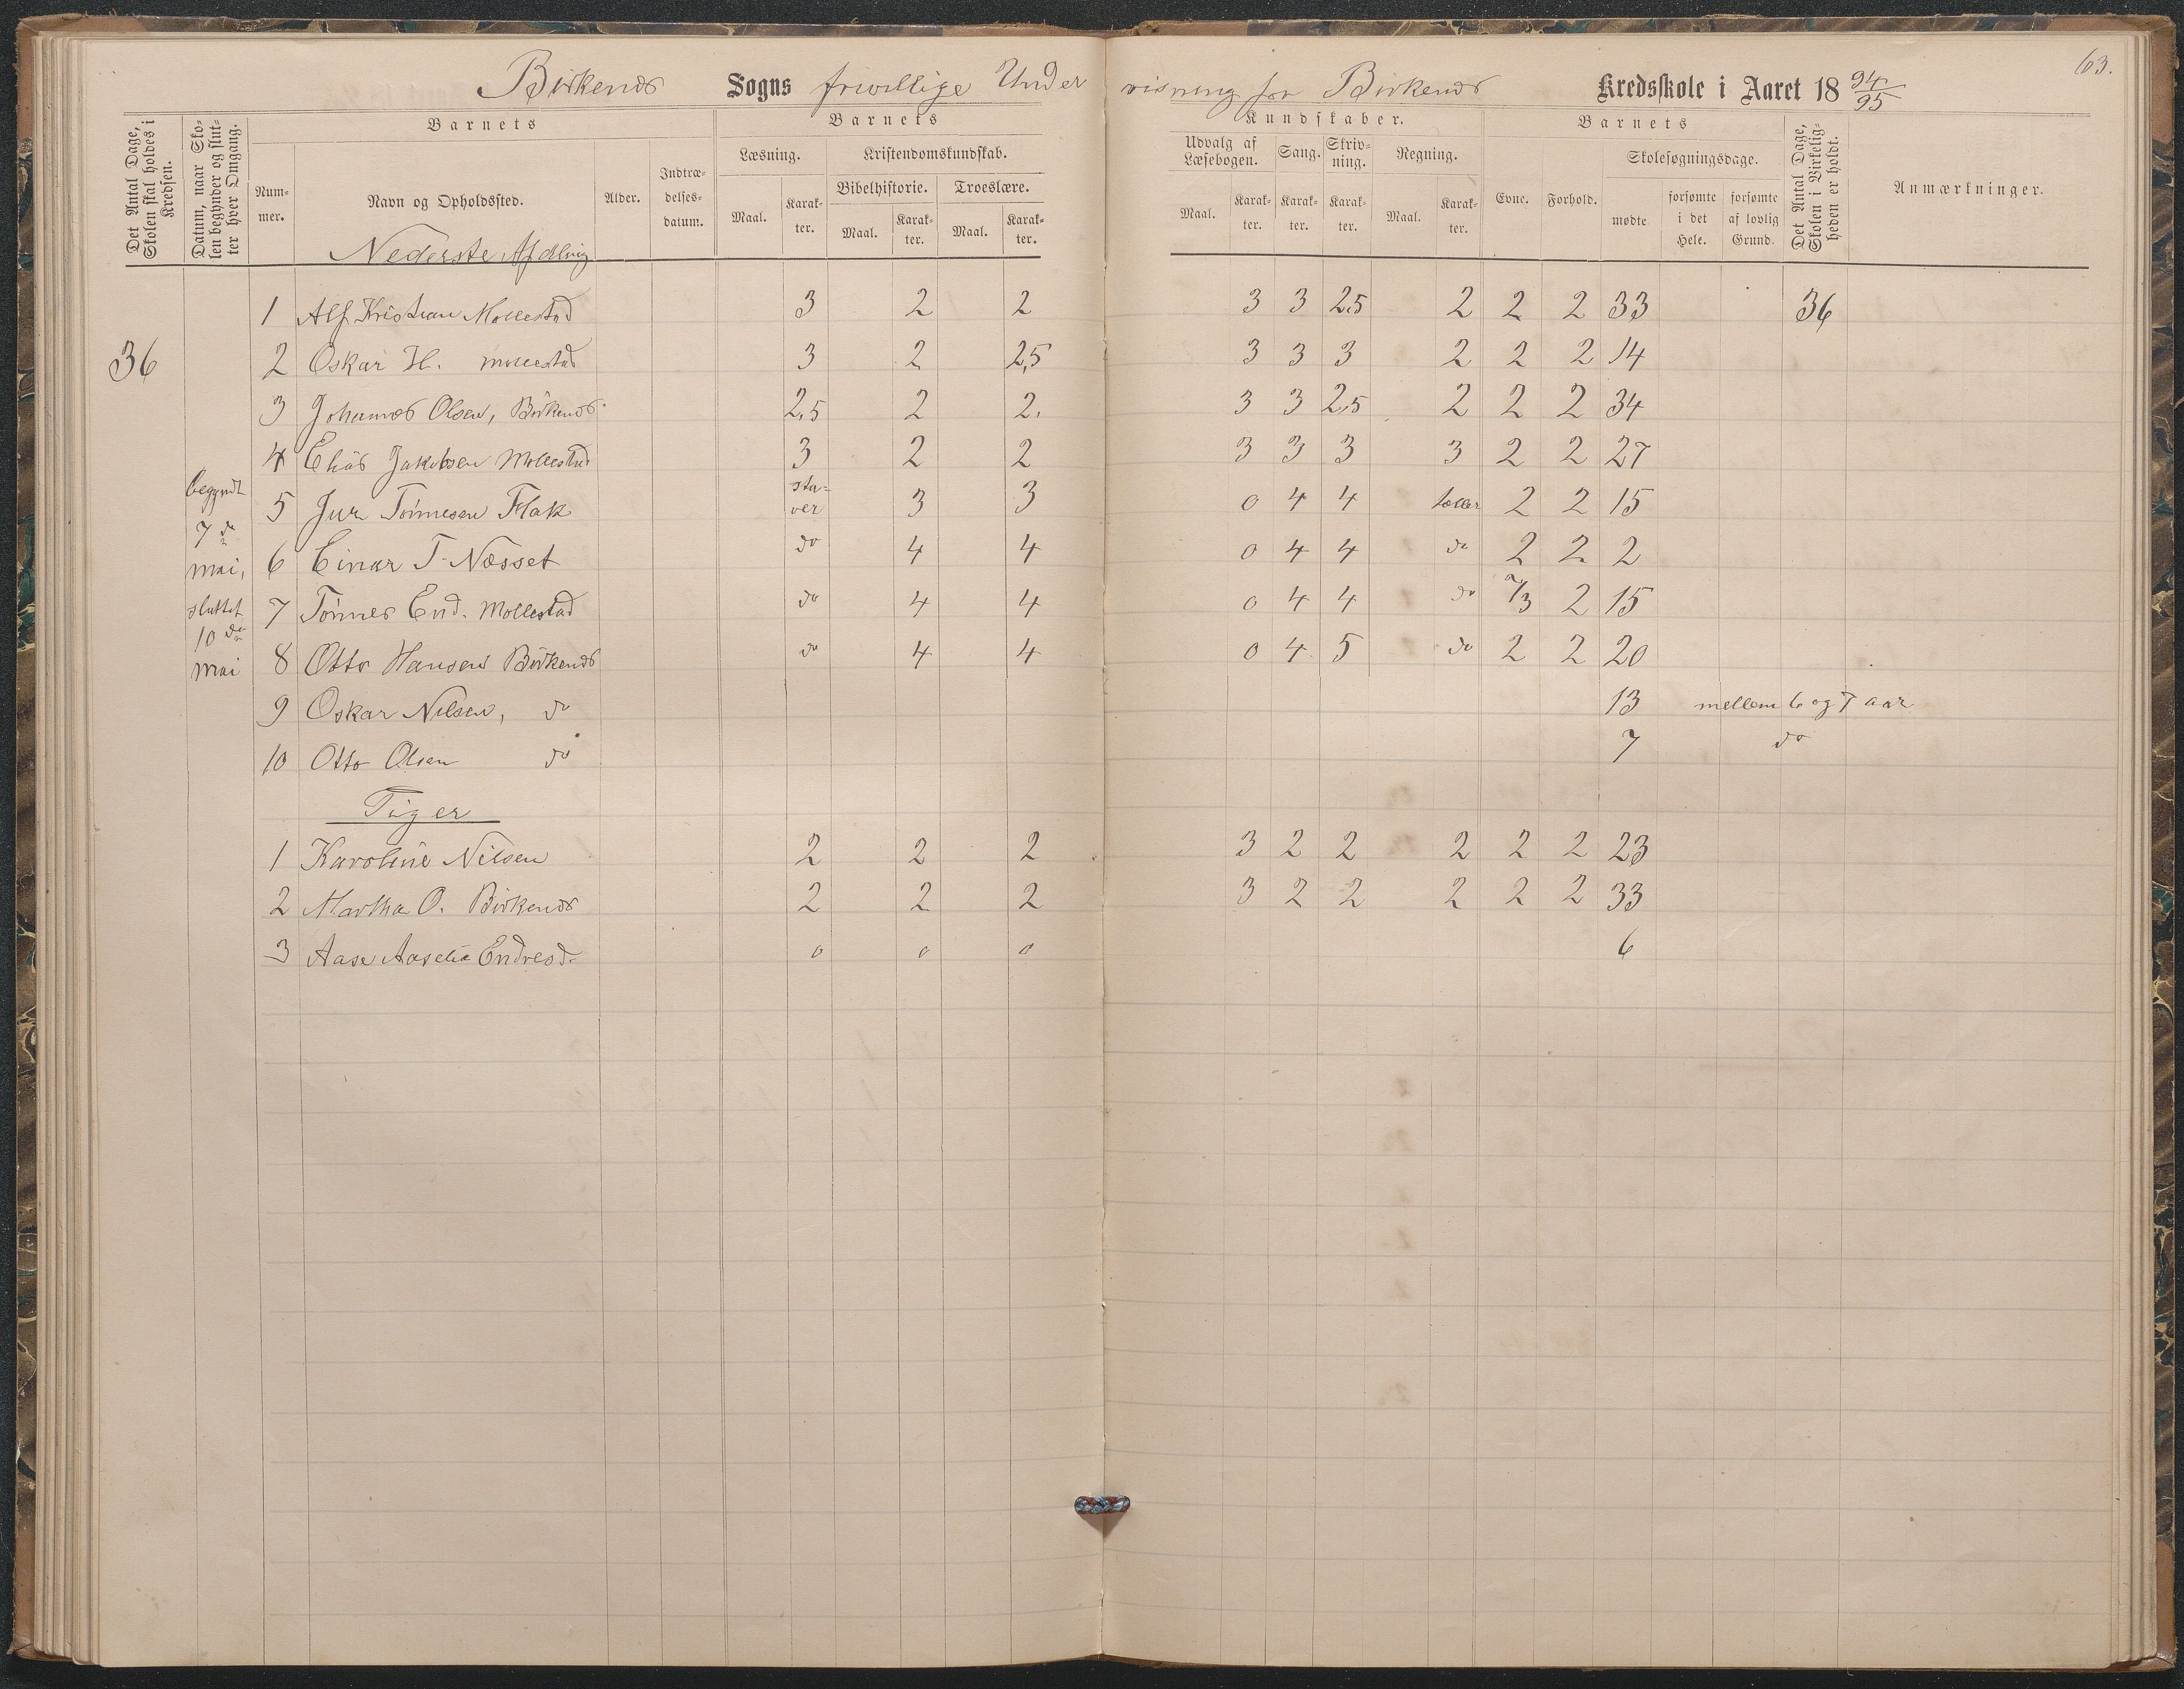 63.
Birkenæs Sogns frivillige Undervisning for Birkenæs Kredsskole i Aaret 18 94/95
Det Antal Dage, Skolen skal holdes i Kredsen.
Datum, naar Skolen begynder og slutter hver Omgang.
Barnets
Nummer.
Navn og Opholdssted.
Alder.
Indtrædelsesdatum.
Barnets
Læsning.
Maal.
Karakter.
Kristendomskundskab.
Bibelhistorie.
Maal.
Karakter.
Troeslære.
Maal.
Karakter.
Kundskaber.
Udvalg af Læsebogen.
Maal.
Karakter.
Sang.
Karakter.
Skrivning.
Karakter.
Regning.
Maal.
Karakter.
Barnets
Evne.
Forhold.
Skolesøgningsdage.
mødte
forsømte i det Hele.
forsømte af lovlig Grund.
Det Antal Dage, Skolen i Virkeligheden er holdt.
Anmærkninger.
Nederste Afdling
1 Alf Kristian Mollestad 3 2 2 3 3 2,5 2 2 2 33 36
36 2 Oskar H. Mollestad 3 2 2,5 3 3 3 2 2 2 14
3 Johannes Olsen, Birkenæs 2,5 2 2. 3 3 2,5 2 2 2 34
4 Elias Jakobsen Mollestad 3 2 2 3 3 3 3 2 2 27
begyndt
5 Jur Tønnesen Flak sta=ver 3 3 0 4 4 tæller 2 2 15
7 de
mai,
6 Einar T. Næsset do 4 4 0 4 4 do 2 2 2
sluttet
7 Tønnes End. Mollestad do 4 4 0 4 4 do 2/3 2 15
10 de
mai
8 Otto Hansen Birkenæs do 4 4 0 4 5 do 2 2 20
9 Oskar Nilsen, do 13 mellem 6 og 7 aar
10 Otto Olsen do 7 do
Piger
1 Karoline Nilsen 2 2 2 3 2 2 2 2 2 23
2 Martha O. Birkenæs 2 2 2 3 2 2 2 2 2 33
3 Aase Aaselie Endresd. 0 0 0 6